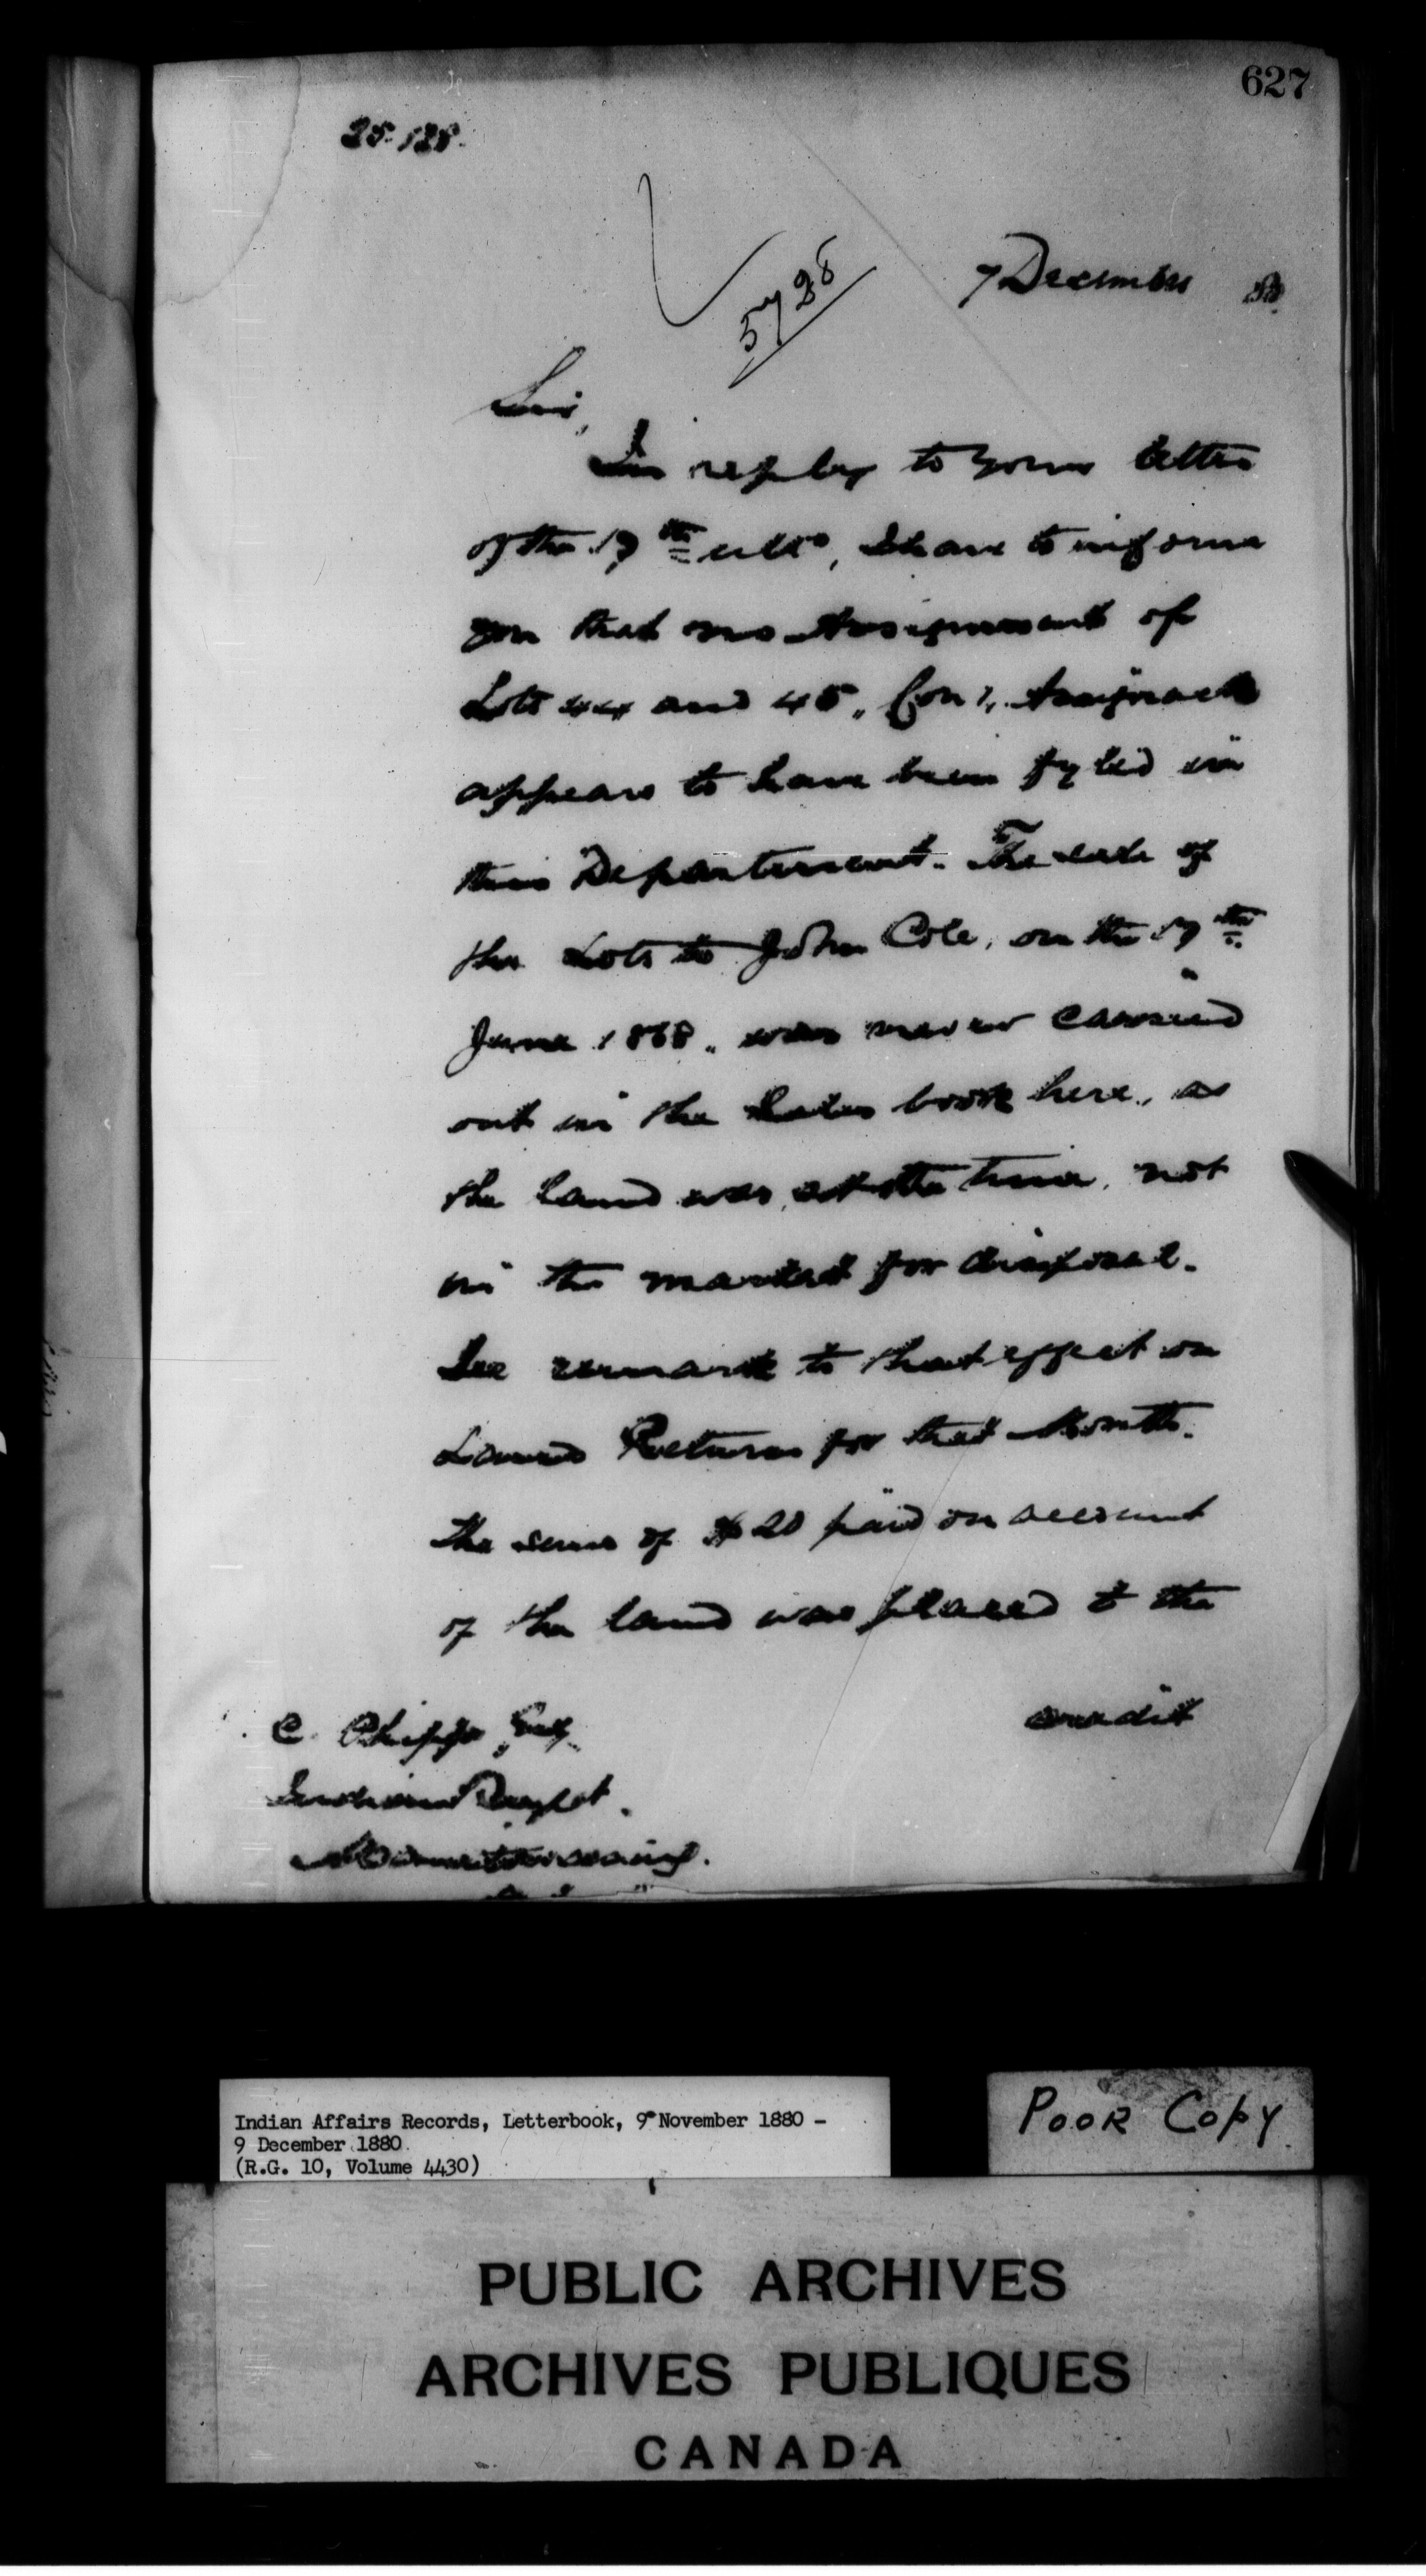 627
25.128.
5728
7 December 80
Sir,
In reply to your letter
of the 17th ulto, I have to inform
you that no Assignment of
Lots 44 and 45, Con 1, Assiginack
appears to have been fyled in
this Department. The sale of
the Lots to John Cole, on the 17th
June 1868, was never carried
out in the Sales book here, as
the land was, at the time, not
in the market for disposal.
See remark to that effect on
Land Returns for that Month.
The sum of $20 paid on account
of the land was placed to the
credit
C. Phipps, Esq.
Indian Supt.
Manitowaning.
Indian Affairs Records, Letterbook, 9 November 1880 -
9 December 1880.
(R.G. 10, Volume 4430)
POOR COPY
PUBLIC ARCHIVES
ARCHIVES PUBLIQUES
CANADA